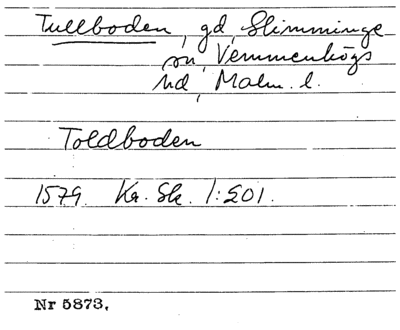 Tullboden, gd, Slimminge
sn, Vemmenhögs
hd, Malm. l.
Toldboden
1579. Kr. Sk. 1:201.
Nr 5873.